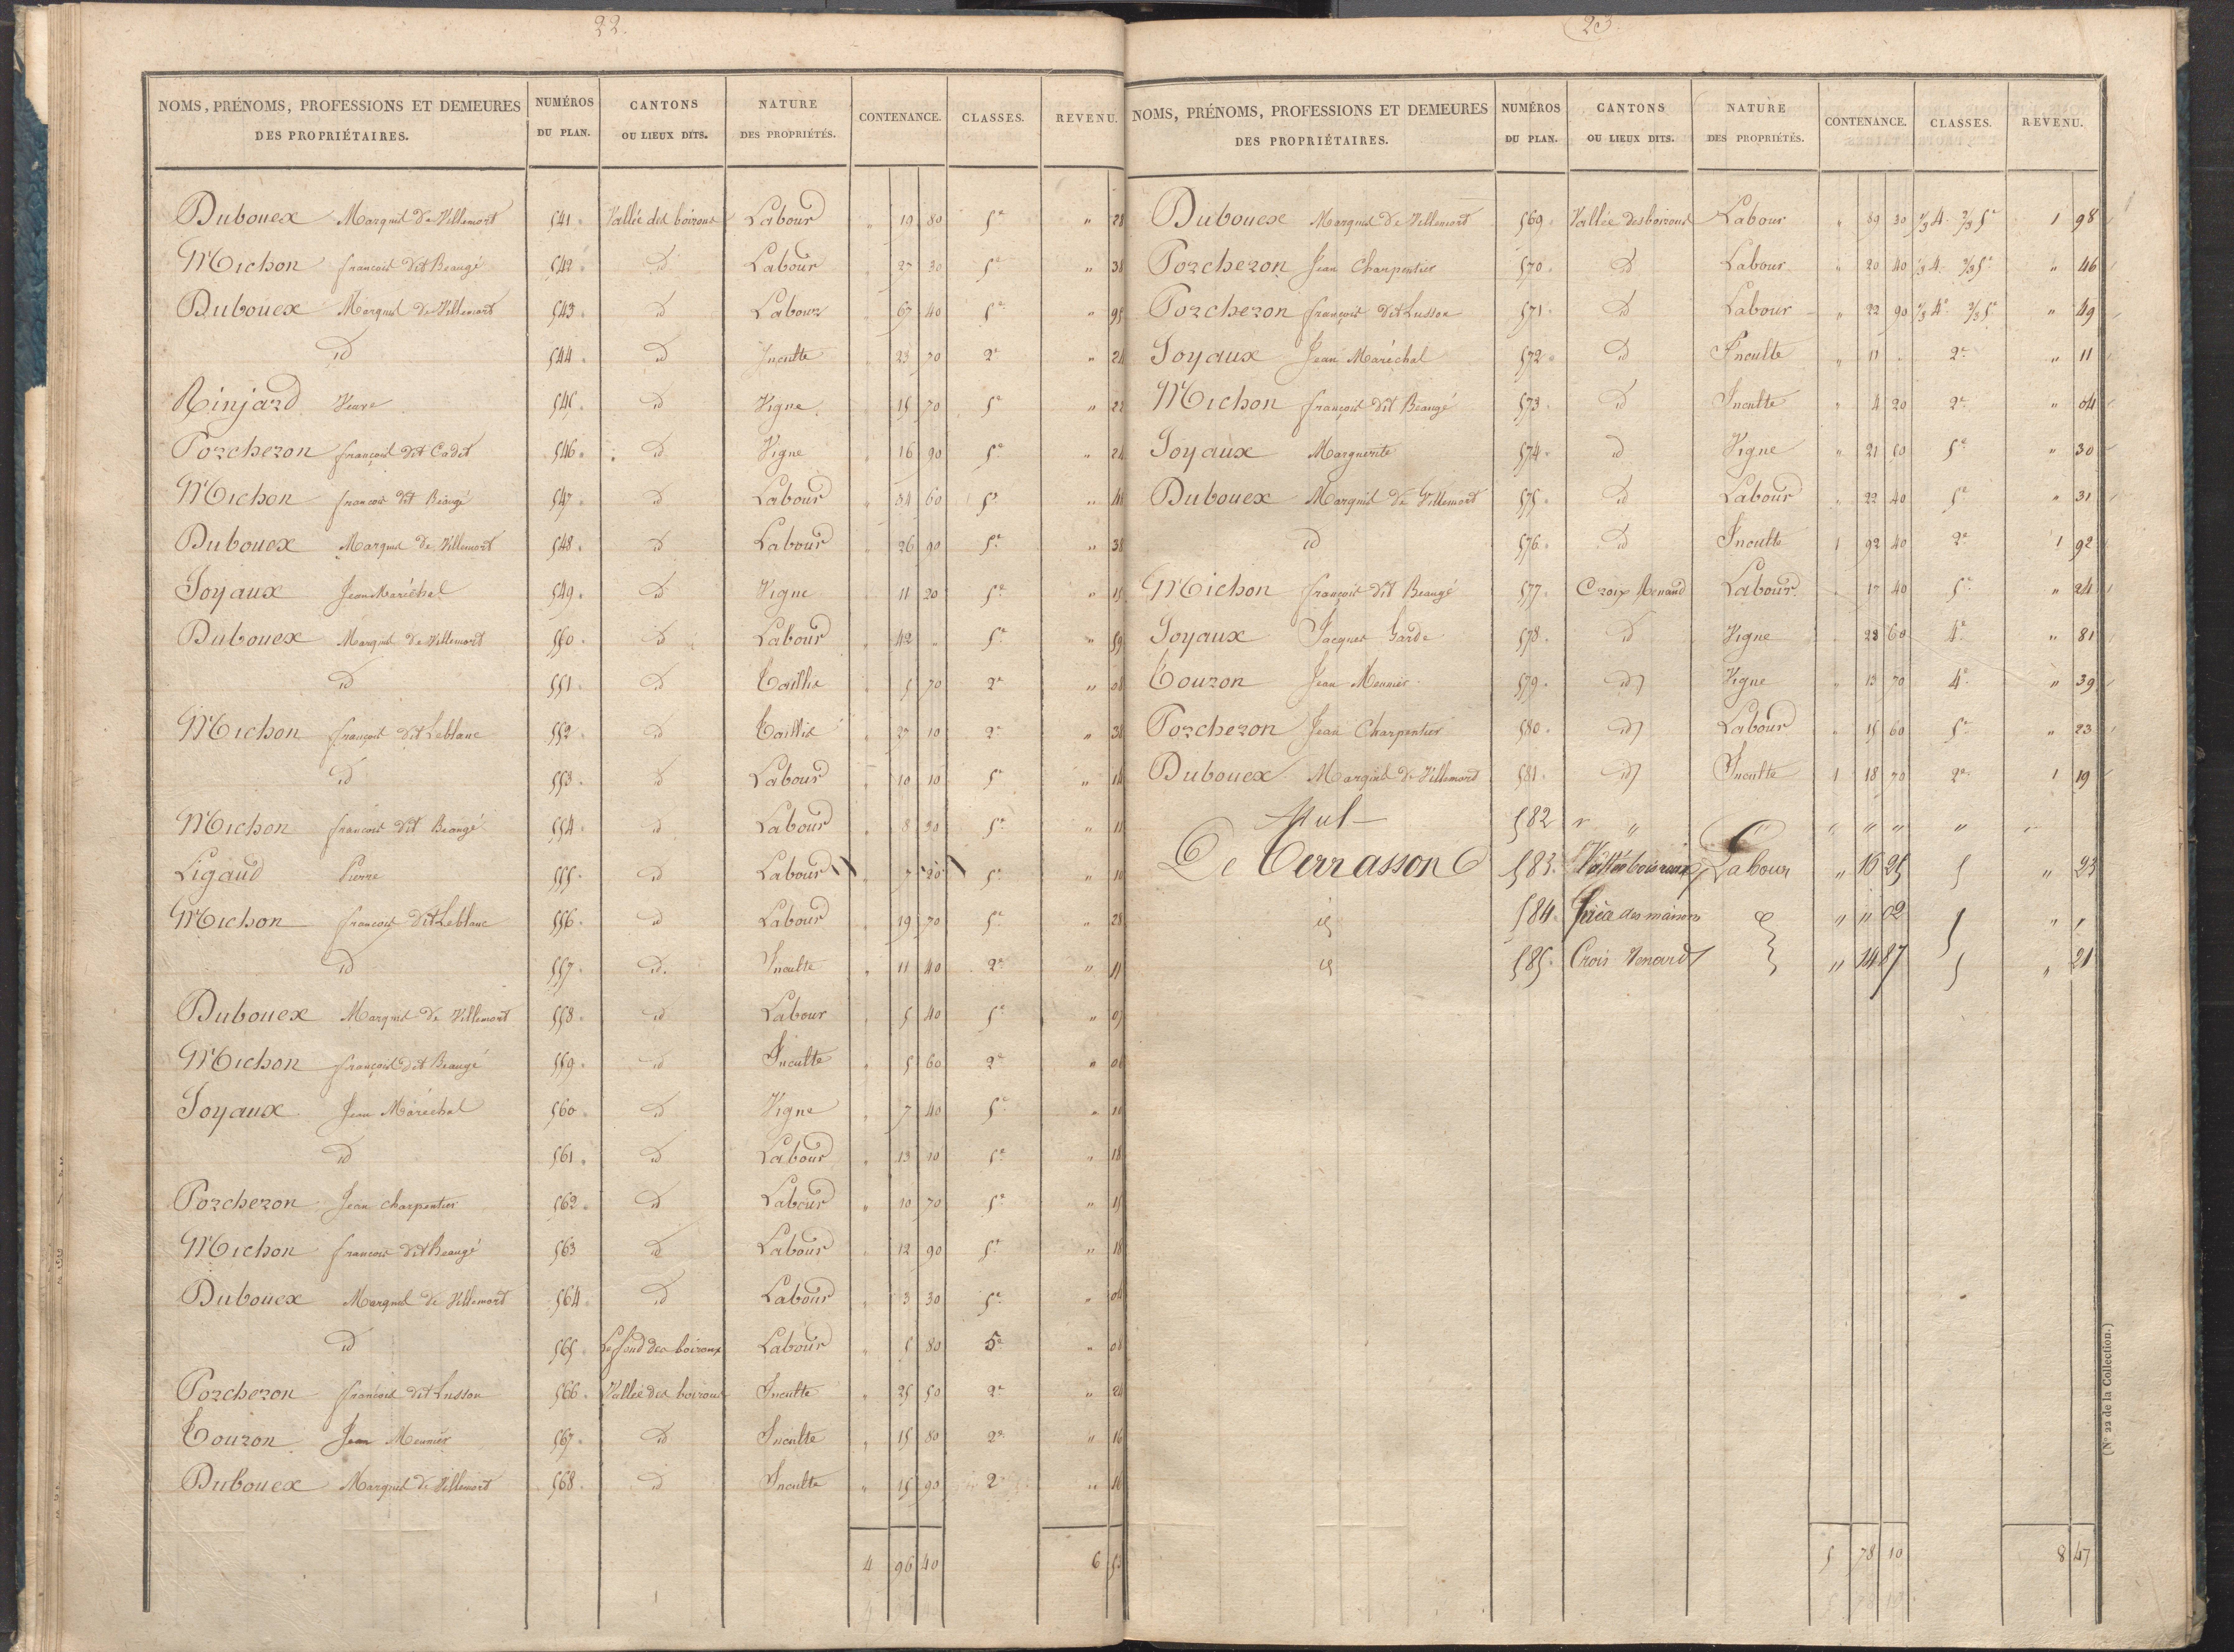 22.
NOMS, PRÉNOMS, PROFESSIONS ET DEMEURES DES PROPRIÉTAIRES. NUMÉROS DU PLAN. CANTONS OU LIEUX DITS. NATURE DES PROPRIÉTÉS. CONTENANCE. CLASSES. REVENU.
Dubouex Marquis de Villemort 541. Vallée des boiroux Labour " 19 80 5e " 28
Michon françois dit Beaugé 542. id Labour " 27 30 5e " 38
Dubouex Marquis de Villemort 543. id Labour " 67 40 5e " 95
id 544. id Inculte " 23 70 2e " 24
Rinjard Veuve 545. id Vigne " 15 70 5e " 22
Porcheron françois dit Cadet 546. id Vigne " 16 90 5e " 24
Michon françois dit Beaugé 547. id Labour " 34 60 5e " 48
Dubouex Marquis de Villemort 548. id Labour " 26 90 5e " 38
Joyaux Jean Maréchal 549. id Vigne " 11 20 5e " 15
Dubouex Marquis de Villemort 550. id Labour " 42 " 5e " 59
id 551. id Taillis " 5 70 2e " 08
Michon françois dit Leblanc 552. id Taillis " 27 10 2e " 38
id 553. id Labour " 10 10 5e " 14
Michon françois dit Beaugé 554. id Labour " 8 30 5e " 11
Ligaud Pierre 555. id Labour " 7 20 5e " 10
Michon françois dit Leblanc 556. id Labour " 19 70 5e " 28
id 557. id. Inculte " 11 40 2e " 11
Dubouex Marquis de Villemort 558. id Labour " 5 40 5e " 07
Michon françois dit Beaugé 559. id Inculte " 5 60 2e " 06
Joyaux Jean Maréchal 560. id Vigne " 7 40 5e " 10
id 561. id Labour " 13 10 5e " 18
Porcheron Jean charpentier 562. id Labour " 10 70 5e " 15
Michon françois dit Beaugé 563 id Labour " 12 90 5e " 18
Dubouex Marquis de Villemort 564. id Labour " 3 30 5e " 04
id 565. Le fond des boiroux Labour " 5 80 5e " 08
Porcheron françois dit Lusson 566. Vallée des boiroux Inculte " 25 50 2e " 26
Touzon Jean Meunier 567. id Inculte " 15 80 2e " 16
Dubouex Marquis de Villemort 568. id Inculte " 15 90 2 " 16
4 96 40 6
23
NOMS, PRÉNOMS, PROFESSIONS ET DEMEURES DES PROPRIÉTAIRES. NUMÉROS DU PLAN. CANTONS OU LIEUX DITS. NATURE DES PROPRIÉTÉS. CONTENANCE. CLASSES. REVENU.
Dubouex Marquis de Villemort 569. Vallée des boiroux Labour " 89 30 1/3 4 2/3 5e 1 98
Porcheron Jean Charpentier 570. id Labour " 20 40 1/3 4 2/3 5e " 46
Porcheron françois dit Lusson 571. id Labour " 22 90 1/3 4e 2/3 5e " 49
Joyaux Jean Maréchal 572. id Inculte " 11 . 2e " 11
Michon françois dit Beaugé 573. id Inculte " 4 20 2e " 04
Joyaux Marguerite 574. id Vigne " 21 50 5e " 30
Dubouex Marquis de Villemort 575. id Labour " 22 40 5e " 31
id 576. id Inculte 1 92 40 2e 1 92
Michon françois dit Beaugé 577. Croix Renard Labour " 17 40 5e " 24
Joyaux Jacques Garde 578. id Vigne " 28 60 4e " 81
Touzon Jean Meunier 579. id Vigne " 13 70 4e " 39
Porcheron Jean Charpentier 580. id Labour " 15 60 5e " 23
Dubouex Marquis de Villemort 581. id Inculte 1 18 70 2e 1 19
Nul 582 " " " " " " "
De Terrasson 583. Vallée boiroux Labour " 16 25 5 " 23
id 584. des maisons " " 02 " "
id 585. Crois Renard " 14 87 5 " 21
5 78 10 8 47
(No 22 de la Collection.)